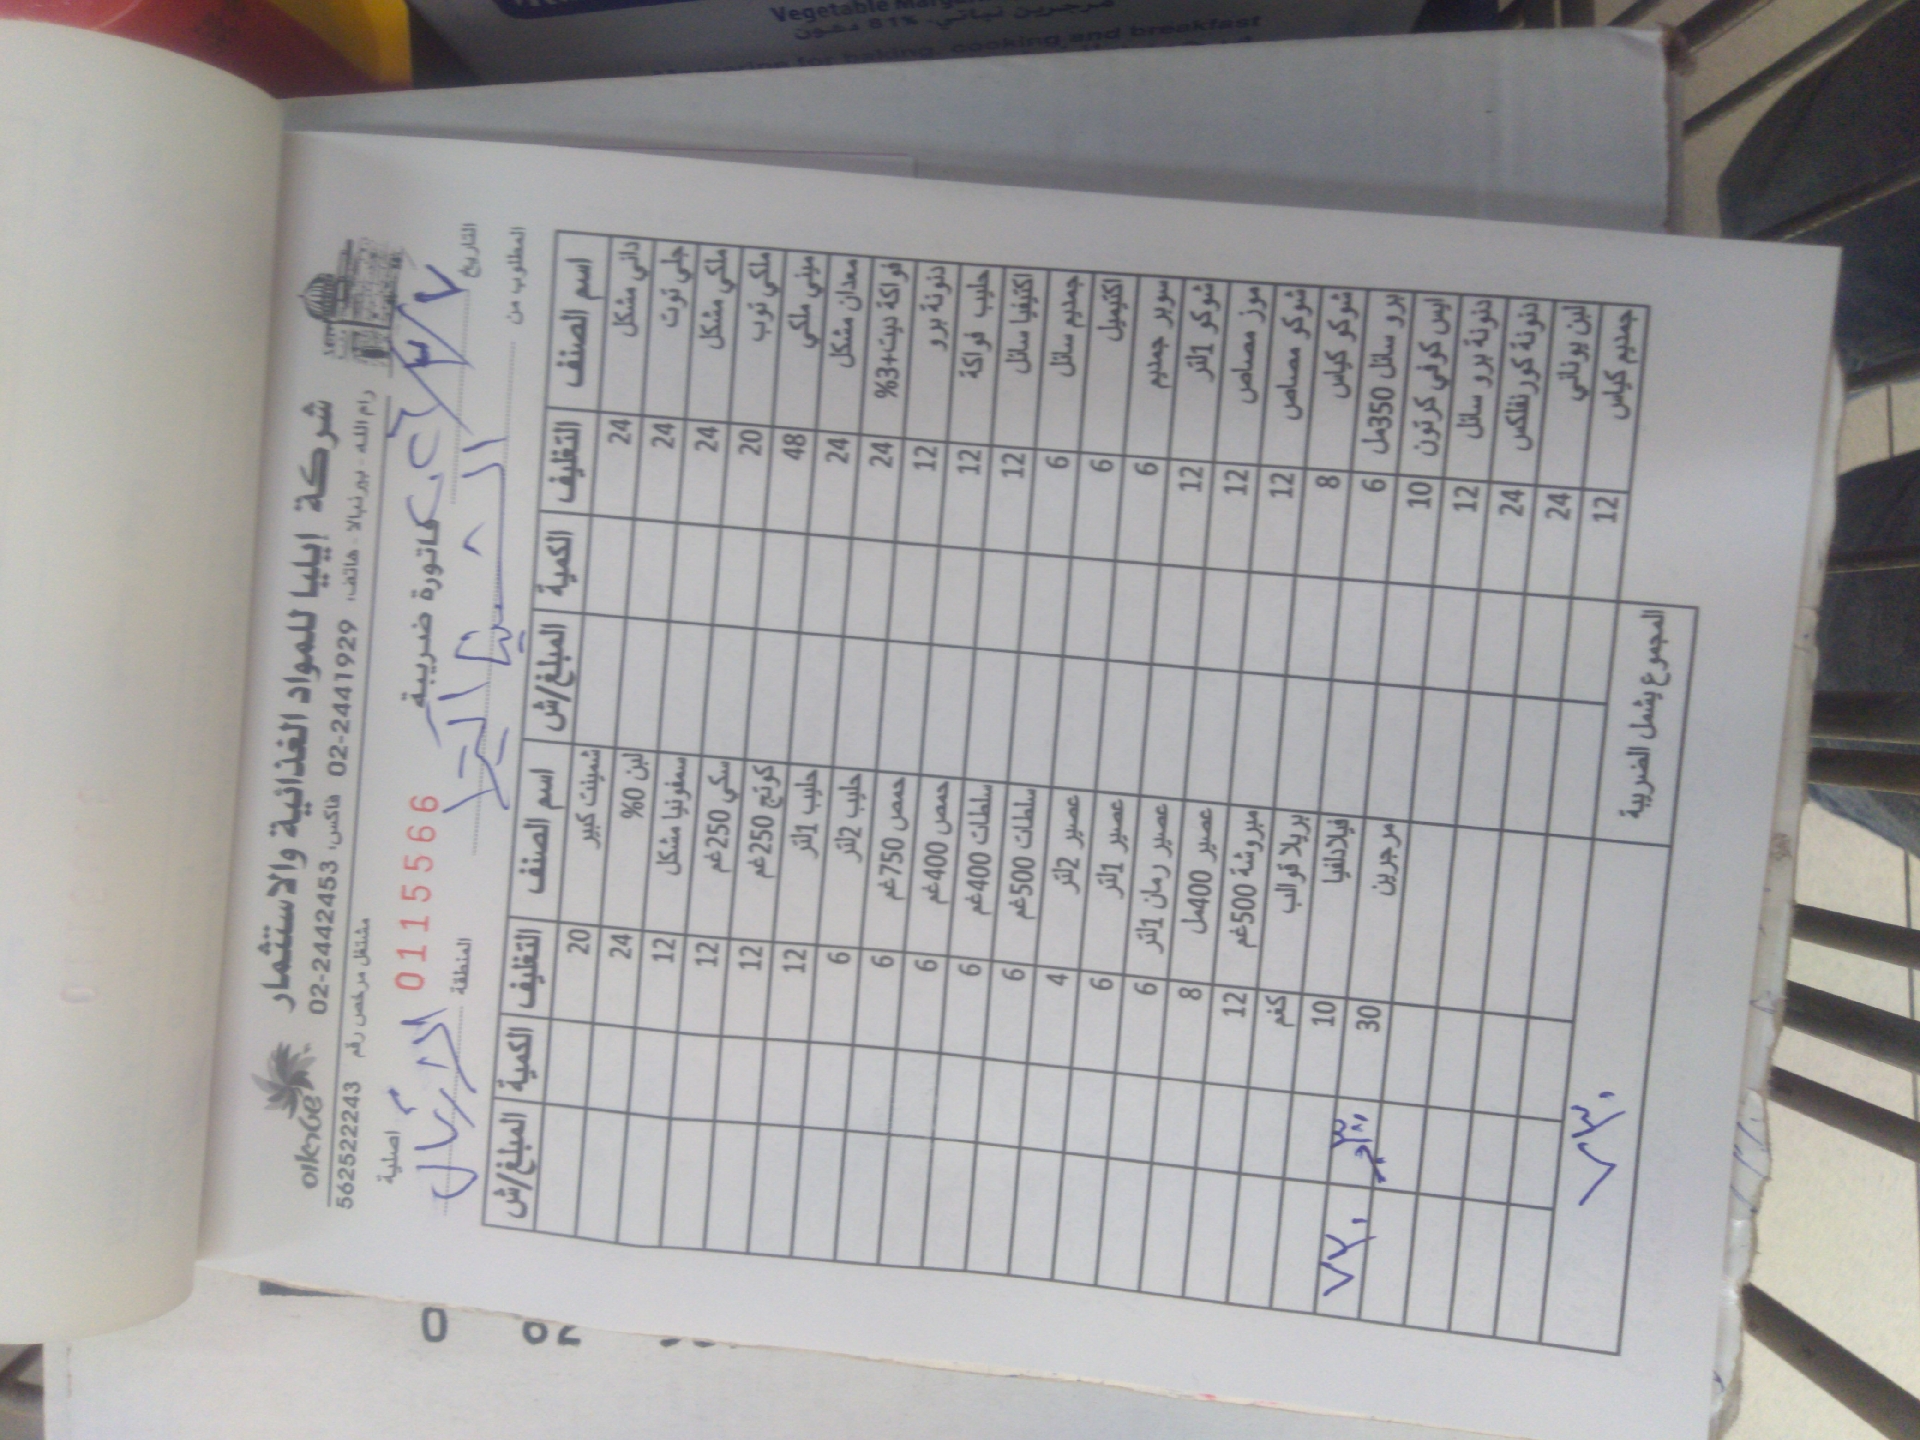 شركة ايليا للمواد الغذائية والاستثمار
رام الله - بير نبالا - هاتف: 02-2441929 فاكس: 02-2442453
مشتغل مرخص رقم 562522243
التاريخ
فاتورة ضريبية
0115566
اصلية
المطلوب من
المنطقة
اسم الصنف التغليف الكمية المبلغ/ش اسم الصنف التغليف الكمية المبلغ/ش
داني مشكل 24 شمينت كبير 20
جلي توت 24 لبن 0% 24
ملكي مشكل 24 سمفونيا مشكل 12
ملكي توب 20 سكي 250غم 12
ميني ملكي 48 كوتج 250غم 12
معدان مشكل 24 حليب 1لتر 12
فواكة ديت+3% 24 حليب 2لتر 6
دنونة برو 12 حمص 750غم 6
حليب فواكة 12 حمص 400غم 6
اكتيفيا سائل 12 سلطات 400غم 6
جمديم سائل 6 سلطات 500غم 6
اكتيميل 6 عصير 2لتر 4
سوبر جمديم 6 عصير 1لتر 6
شوكو 1لتر 12 عصير رمان 1لتر 6
موز مصاص 12 عصير 400مل 8
شوكو مصاص 12 مبروشة 500غم 12
شوكو كياس 8 بريلا قوالب كغم
برو سائل 350مل 6 فيلادلفيا 10
ايس كوفي كرتون 10 مرجرين 30 ٧٣٠
دنونة برو سائل 12
دنونة كورنفلكس 24
لبن يوناني 24
جمديم كياس 12
المجموع يشمل الضريبة ٧٣٠
Vegetable
for baking, cooking and breakfast